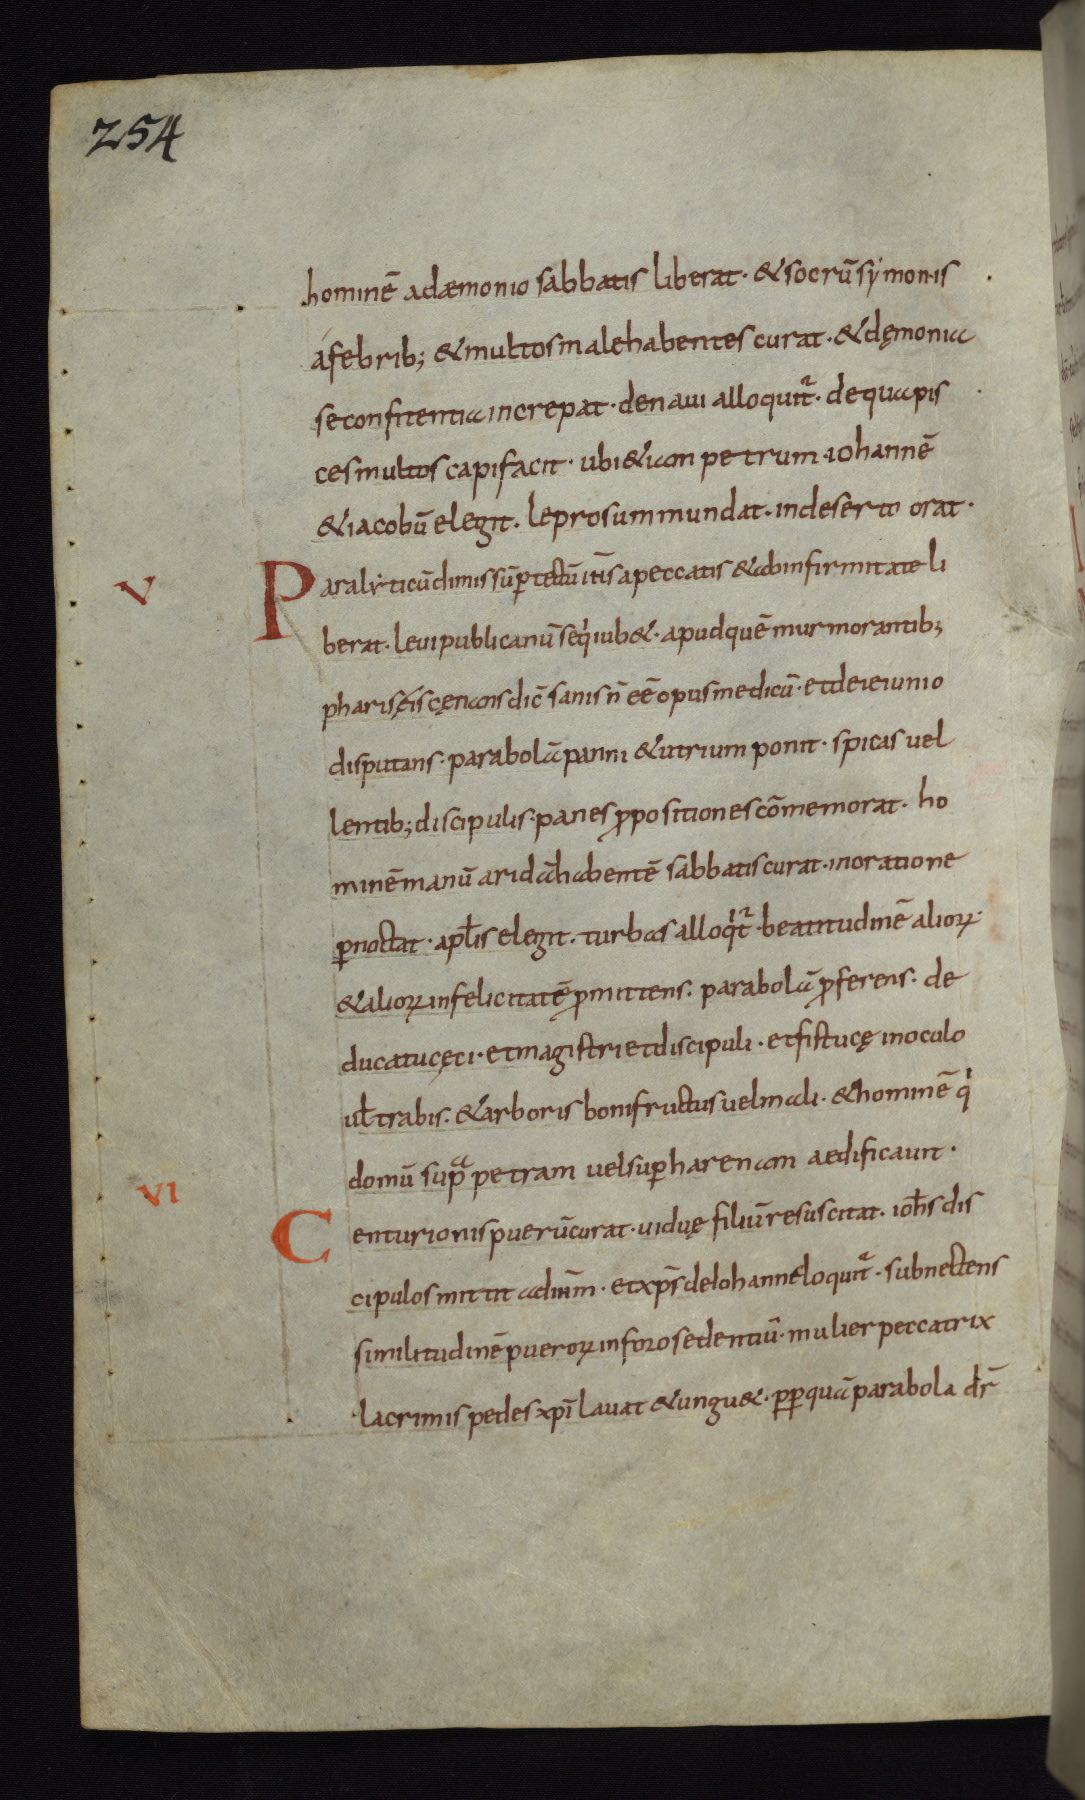 254
hominē adæmonio sabbatis liberat · & socrū sẏmonis
afebrib; & multos male habentes curat · & dęmonia
se confitentia increpat · de naui alloquit᷑ · de qua pis
ces multos capi facit · ubi & iam petrum iohannē
& iacobū elegit · leprosum mundat · in deserto orat ·
V
Paralẏticū dimissū ꝑ tectū itīs apeccatis & ab infirmitate li
berat · leui publicanū seqͥ iub& · apud quē murmorantib;
pharisęis cęnans dic̄ sanis n̄ eē opus medicū · et de ieiunio
disputans · parabolā panni & utrium ponit · spicas uel
lentib; discipulis · panes ꝓpositiones cōmemorat · ho
minē manū aridā habentē sabbatis curat · in oratione
ꝑnoctat · apl̄is elegit · turbas alloqͥt᷑ · beatitudinē alioꝝ ·
& alioꝝ infelicitatē ꝓmittens · parabolā ꝓferens · de
ducatu cęci · et magistri et discipuli · et fistucę in oculo
ul̄ trabis · & arboris boni fructus uel mali · & hominē qͥ
domū supᷓ petram uel suꝑ harenam aedificauit ·
VI
Centurionis puerū curat · uiduę filiū resuscitat · ioh̄s dis
cipulos mittit ad dnm̄ · et xp̄s de Iohanne loquit᷑ · subnectens
similitudinē pueroꝝ in foro sedentiū · mulier peccatrix
lacrimis pedes xp̄i lauat & ungu& · ꝓꝑ quā parabola dr̄